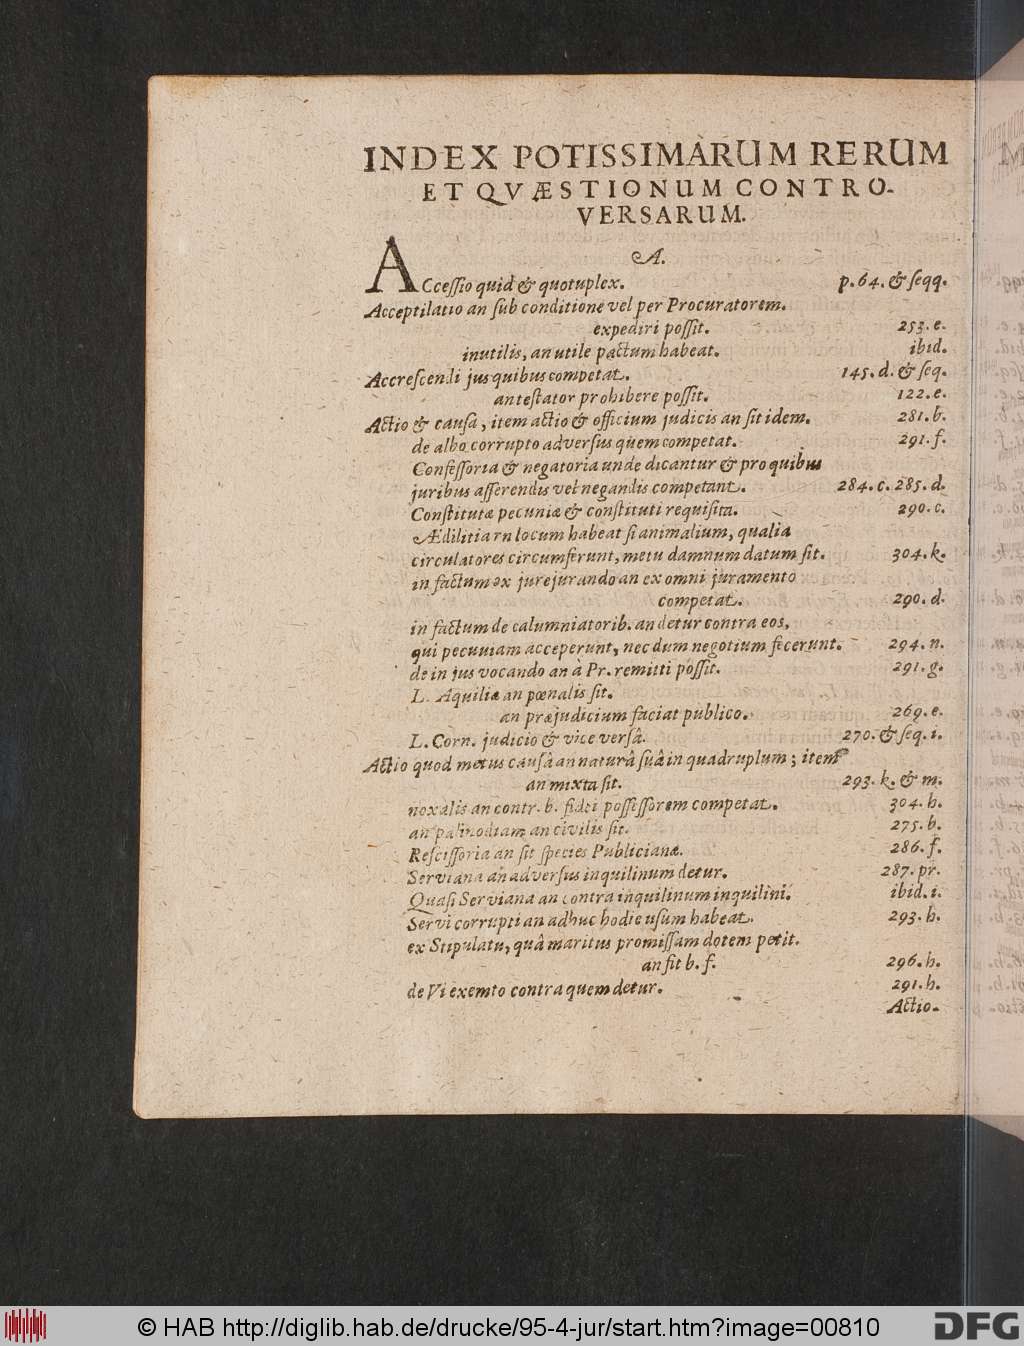 INDEX POTISSIMARUM RERUM
ET QVÆSTIONUM CONTRO-
VERSARUM.
A.
ACceſſio quid & quotuplex. p. 64. & ſeqq.
Acceptilatio an ſub conditione vel per Procuratorem.
expediri poſſit. 253. e.
inutilis, an utile pactum habeat. ibid.
Accreſcendi jus quibus competat. 145. d. & ſeq.
an teſtator prohibere poſſit. 122. e.
Actio & cauſa, item actio & officium judicis an ſit idem. 281. b.
de albo corrupto adverſus quem competat. 291. f.
Confeſſoria & negatoria unde dicantur & pro quibus
juribus aſſerendis vel negandis competant. 284. c. 285. d.
Conſtitutæ pecuniæ & conſtituti requiſita. 290. c.
Ædilitia rn locum habeat ſi animalium, qualia
circulatores circumferunt, metu damnum datum ſit. 304. k.
in factum ex jurejurando an ex omni juramento
competat. 290. d.
in factum de calumniatorib. an detur contra eos,
qui pecuniam acceperunt, nec dum negotium fecerunt. 294. n.
de in jus vocando an à Pr. remitti poſſit. 291. g.
L. Aquiliæ an pœnalis ſit.
an præjudicium faciat publico. 269. e.
L. Corn. judicio & vice verſâ. 270. & ſeq. i.
Actio quod metus cauſâ an naturâ ſuâ in quadruplum; item
an mixta ſit. 293. k. & m.
noxalis an contr. b. fidei poſſeſſorem competat. 304. h.
an palinodiam an civilis ſit. 275. b.
Reſciſſoria an ſit ſpecies Publicianæ. 286. f.
Serviana an adverſus inquilinum detur. 287. pr.
Quaſi Serviana an contra inquilinum inquilini. ibid. i.
Servi corrupti an adhuc hodie uſum habeat. 293. h.
ex Stipulatu, quâ maritus promiſſam dotem petit.
an ſit b. f. 296. h.
de Vi exemto contra quem detur. 291. h.
Actio-
© HAB http://diglib.hab.de/drucke/95-4-jur/start.htm?image=00810
DFG